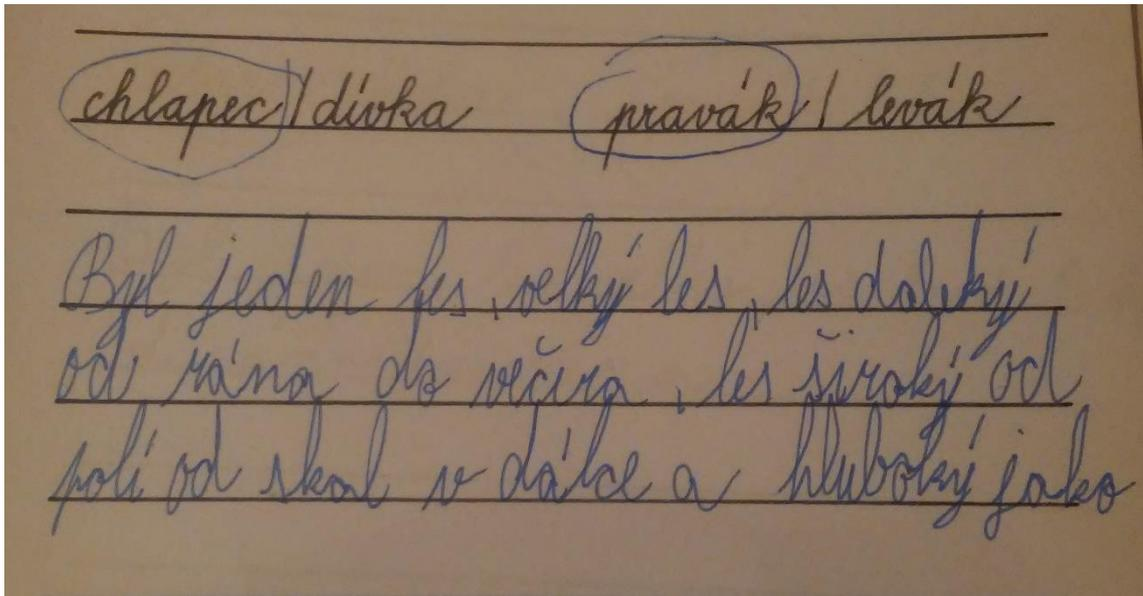 chlapec / dívka pravák / levák
Byl jeden les, velký les, les daleký
od rána do večera, les široký od
polí od skal v dálce a hluboký jako